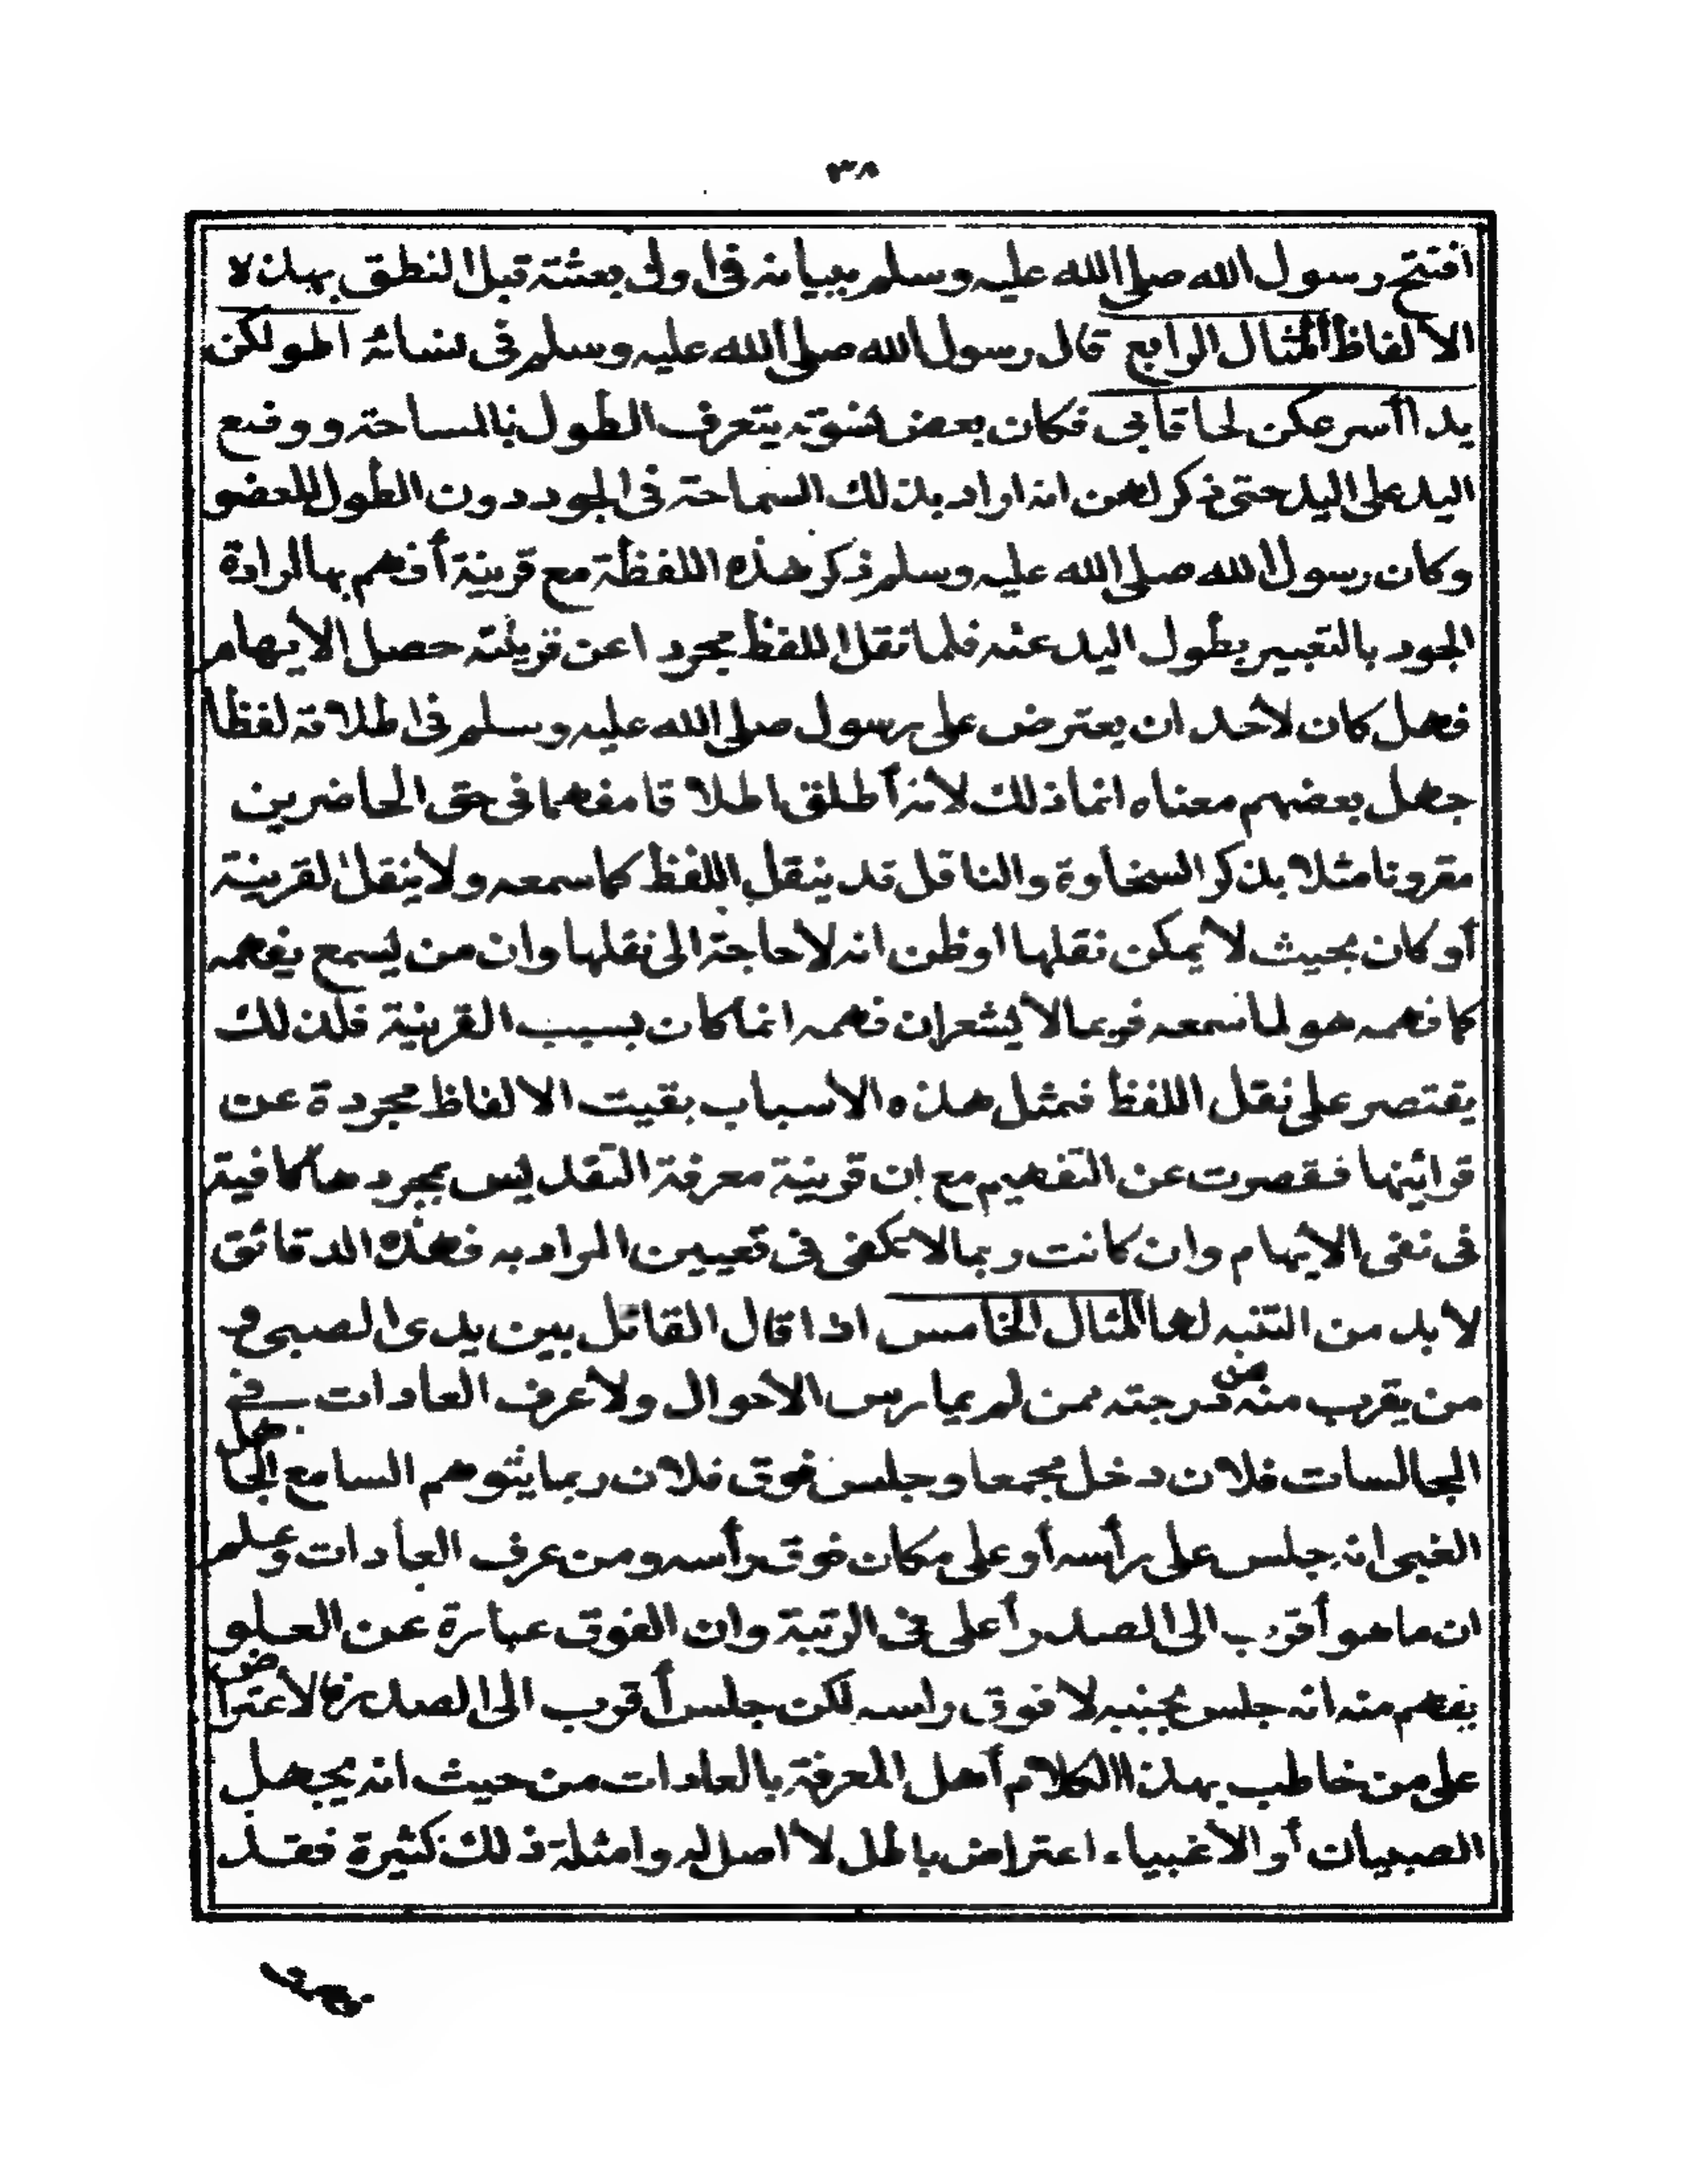 ٣٨
افتتح رسول الله صلى الله عليه وسلم ببيانه في اولى بعثته قبل النطق بهذه
الالفاظ المثال الرابع قال رسول الله صلى الله عليه وسلم في نسائه اطولكن
يدا أسرعكن لحاقا بى فكان بعض نسوته يتعرف الطول بالمساحة ووضع
اليد على اليد حتى ذكر لهن انه اراد بذلك السماحة في الجود دون الطول للعضو
وكان رسول الله صلى الله عليه وسلم ذكر هذه اللفظة مع قرينة أفهم بها ارادة
الجود بالتعبير بطول اليد عنه فلما نقل اللفظ مجردا عن قرينته حصل الايهام
فهل كان لأحد ان يعترض على رسول صلى الله عليه وسلم في اطلاقه لفظا
جهل بعضهم معناه انما ذلك لانه أطلق اطلاقا مفهما في حق الحاضرين
مقرونا مثلا بذكر السخاوة والناقل قد ينقل اللفظ كما سمعه ولا ينقل القرينة
أو كان بحيث لا يمكن نقلها او ظن انه لا حاجة الى نقلها وان من يسمع يفهمه
كما فهمه هو لما سمعه فربما لا يشعر ان فهمه انما كان بسبب القرينة فلذلك
يقتصر على نقل اللفظ فمثل هذه الأسباب بقيت الالفاظ مجردة عن
قرائنها فقصرت عن التفهيم مع ان قرينة معرفة التقديس بمجردها كافية
في نفى الايهام وان كانت ربما لا تكفى في تعيين المراد به فهذه الدقائق
لا بد من التنبه لها المثال الخامس اذا قال القائل بين يدى الصبى و
من يقرب منه من درجته ممن لم يمارس الاحوال ولا عرف العادات في
المجالسات فلان دخل مجمعا وجلس فوق فلان ربما يتوهم السامع الجاهل
الغبى انه جلس على رأسه أو على مكان فوق رأسه ومن عرف العادات وعلم
ان ما هو أقرب الى الصدر أعلى في الرتبة وان الفوق عبارة عن العلو
يفهم منه انه جلس بجنبه لا فوق راسه لكن جلس أقرب الى الصدر فالاعتراض
على من خاطب بهذا الكلام أهل المعرفة بالعادات من حيث انه يجهل
الصبيان أو الاغبياء اعتراض باطل لا اصل له وامثلة ذلك كثيرة فقد